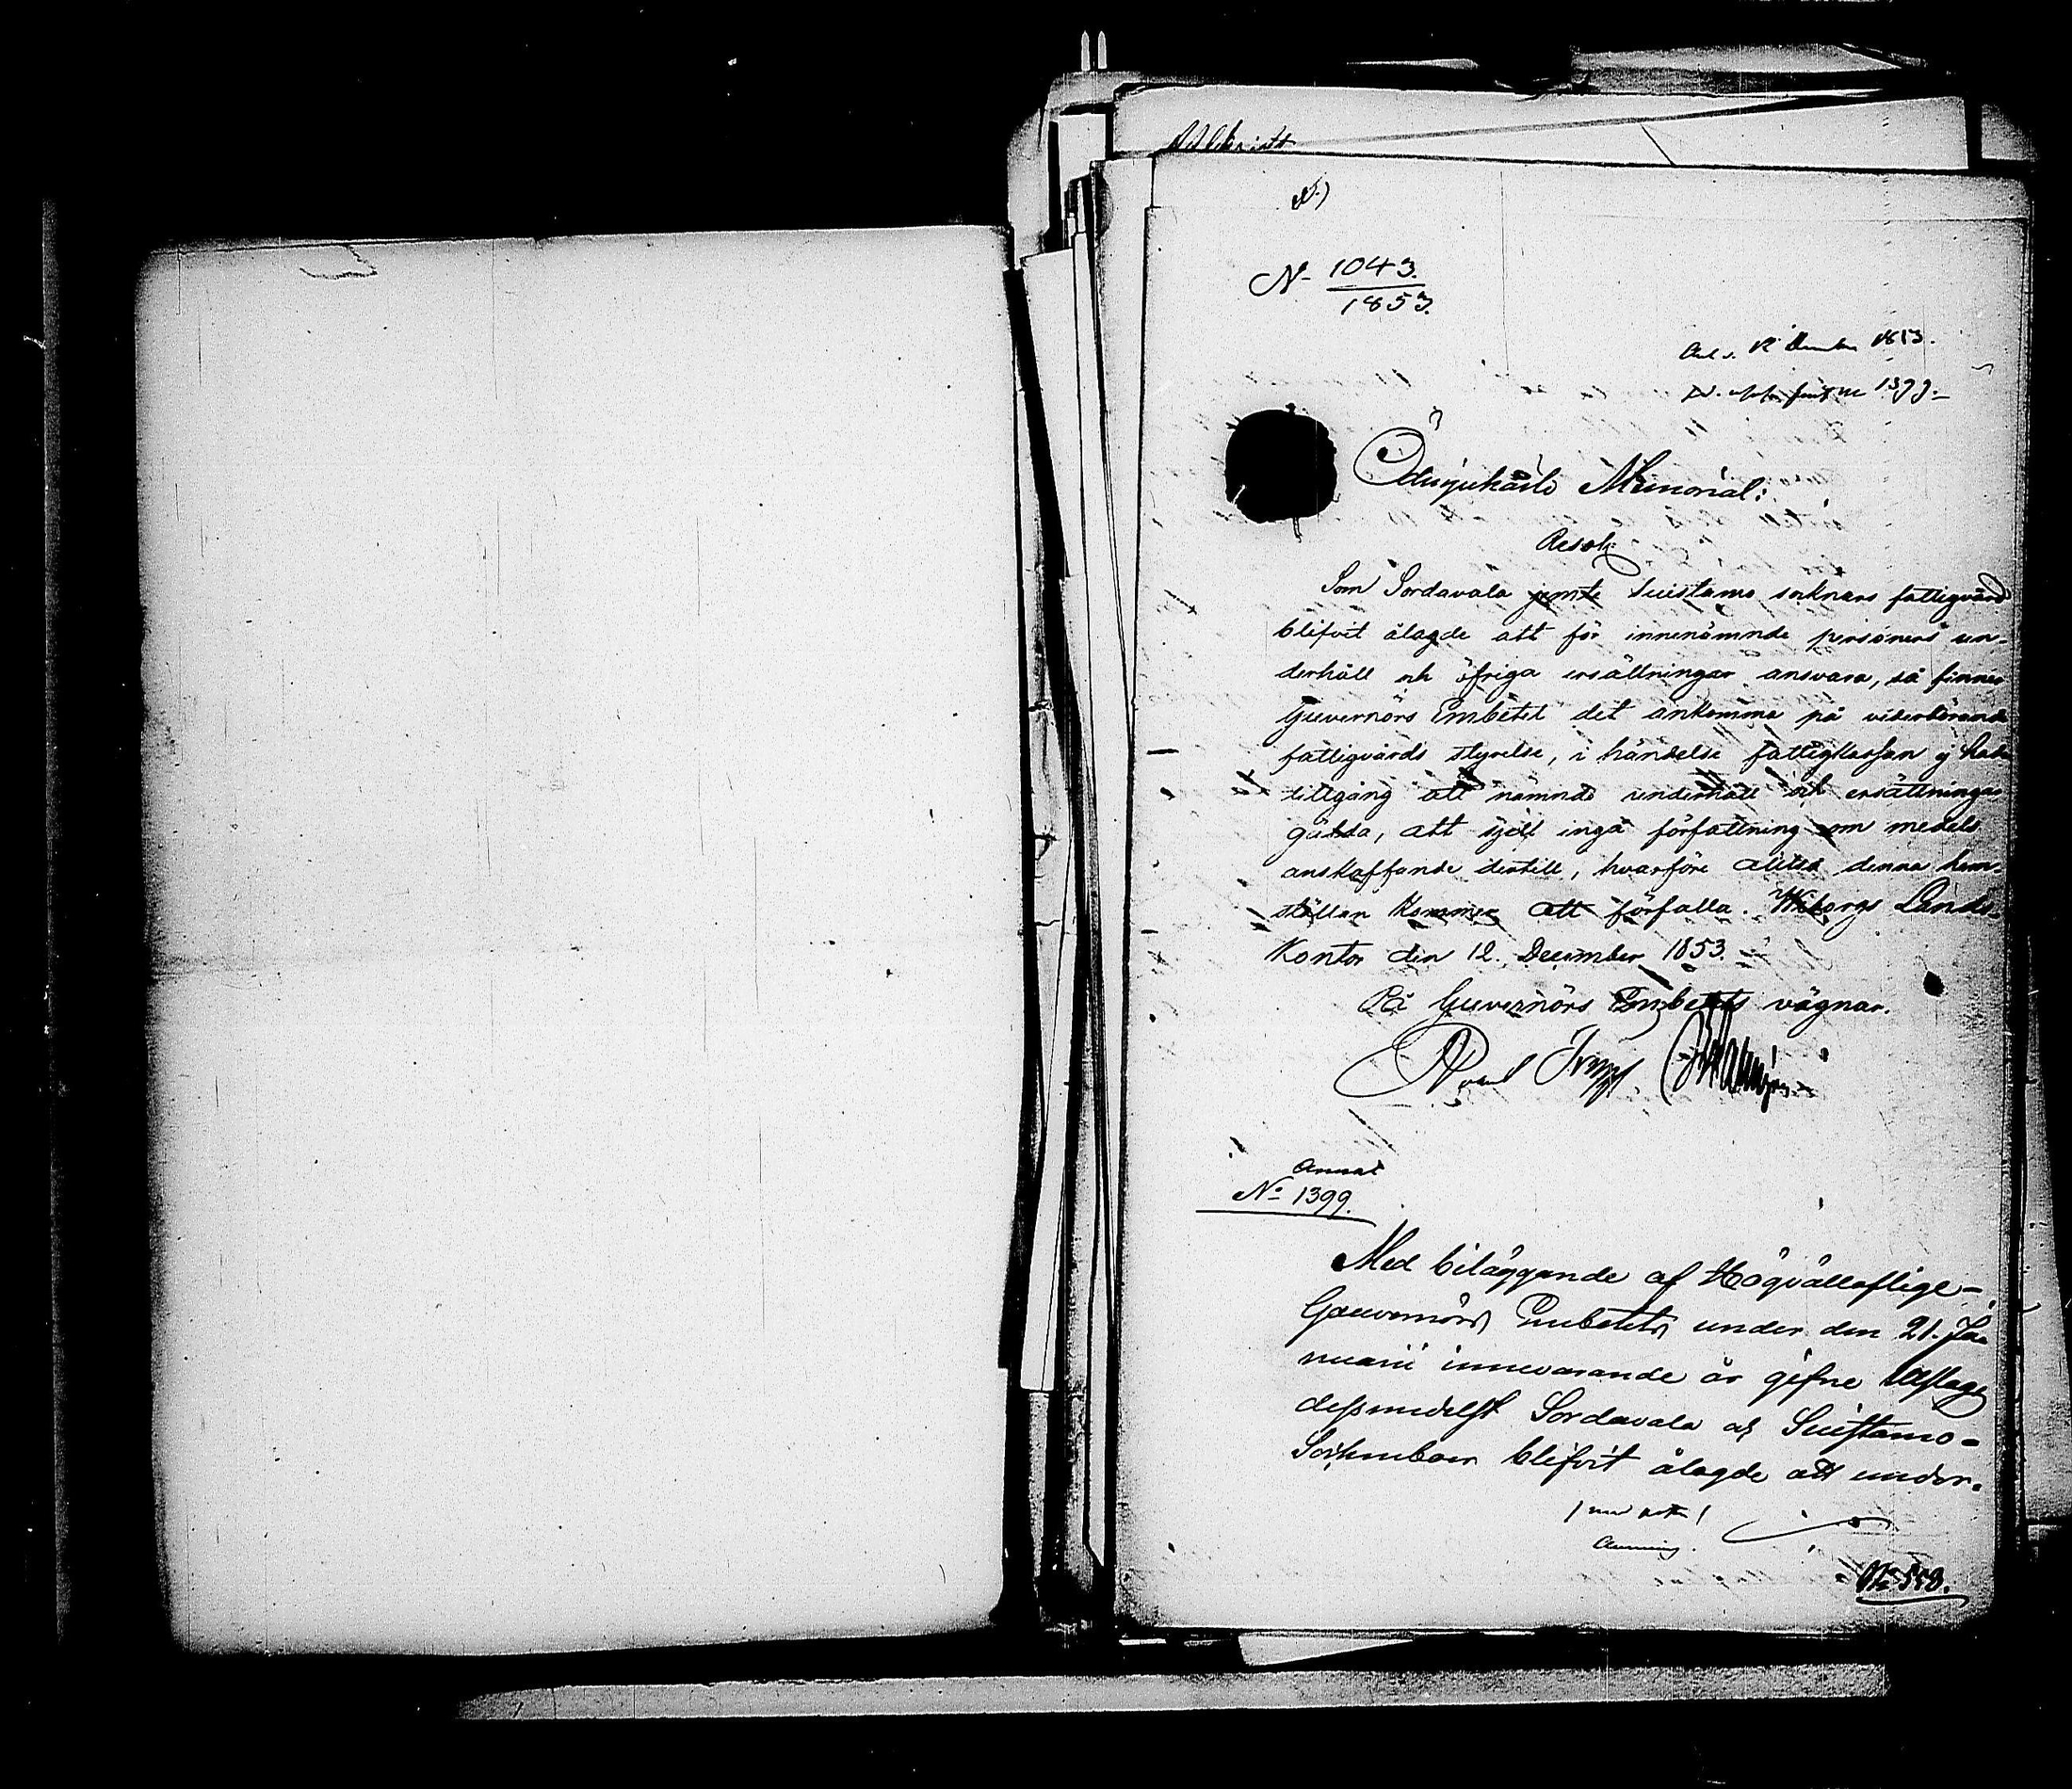 N 1043.
1853.
12 December 1853.
1399
Ödmjukaste Memorial:
Resol:
Som Sordavala jemte Suistamo soknars fattigvård
blifvit ålagde att för innenämnde personers un-
derhåll och öfriga ersättningar ansvara, så finner
Guvernörs Embetet det ankomma på vederbörande
fattigvårds styrelse, i händelse fattigkassan ej har
tillgång att nämnde underhåll och ersättningar
gälda, att sjelf ingå författning om medels
anskaffande dertill, hvarföre alltså denna hem-
ställan kommer att förfalla. Wiborgs Lands-
Kontor den 12. December 1853.
På Guvernörs Embetets vägnar.
Annat
No 1399.
Med biläggande af Högvällofliga
Gouvernörs Embetets under den 21. Ja-
nuarii innevarande år gifne Utslag
dessmedelst Sordavala och Suistamo
Socknboer blifvit ålagde att under-
No 558.